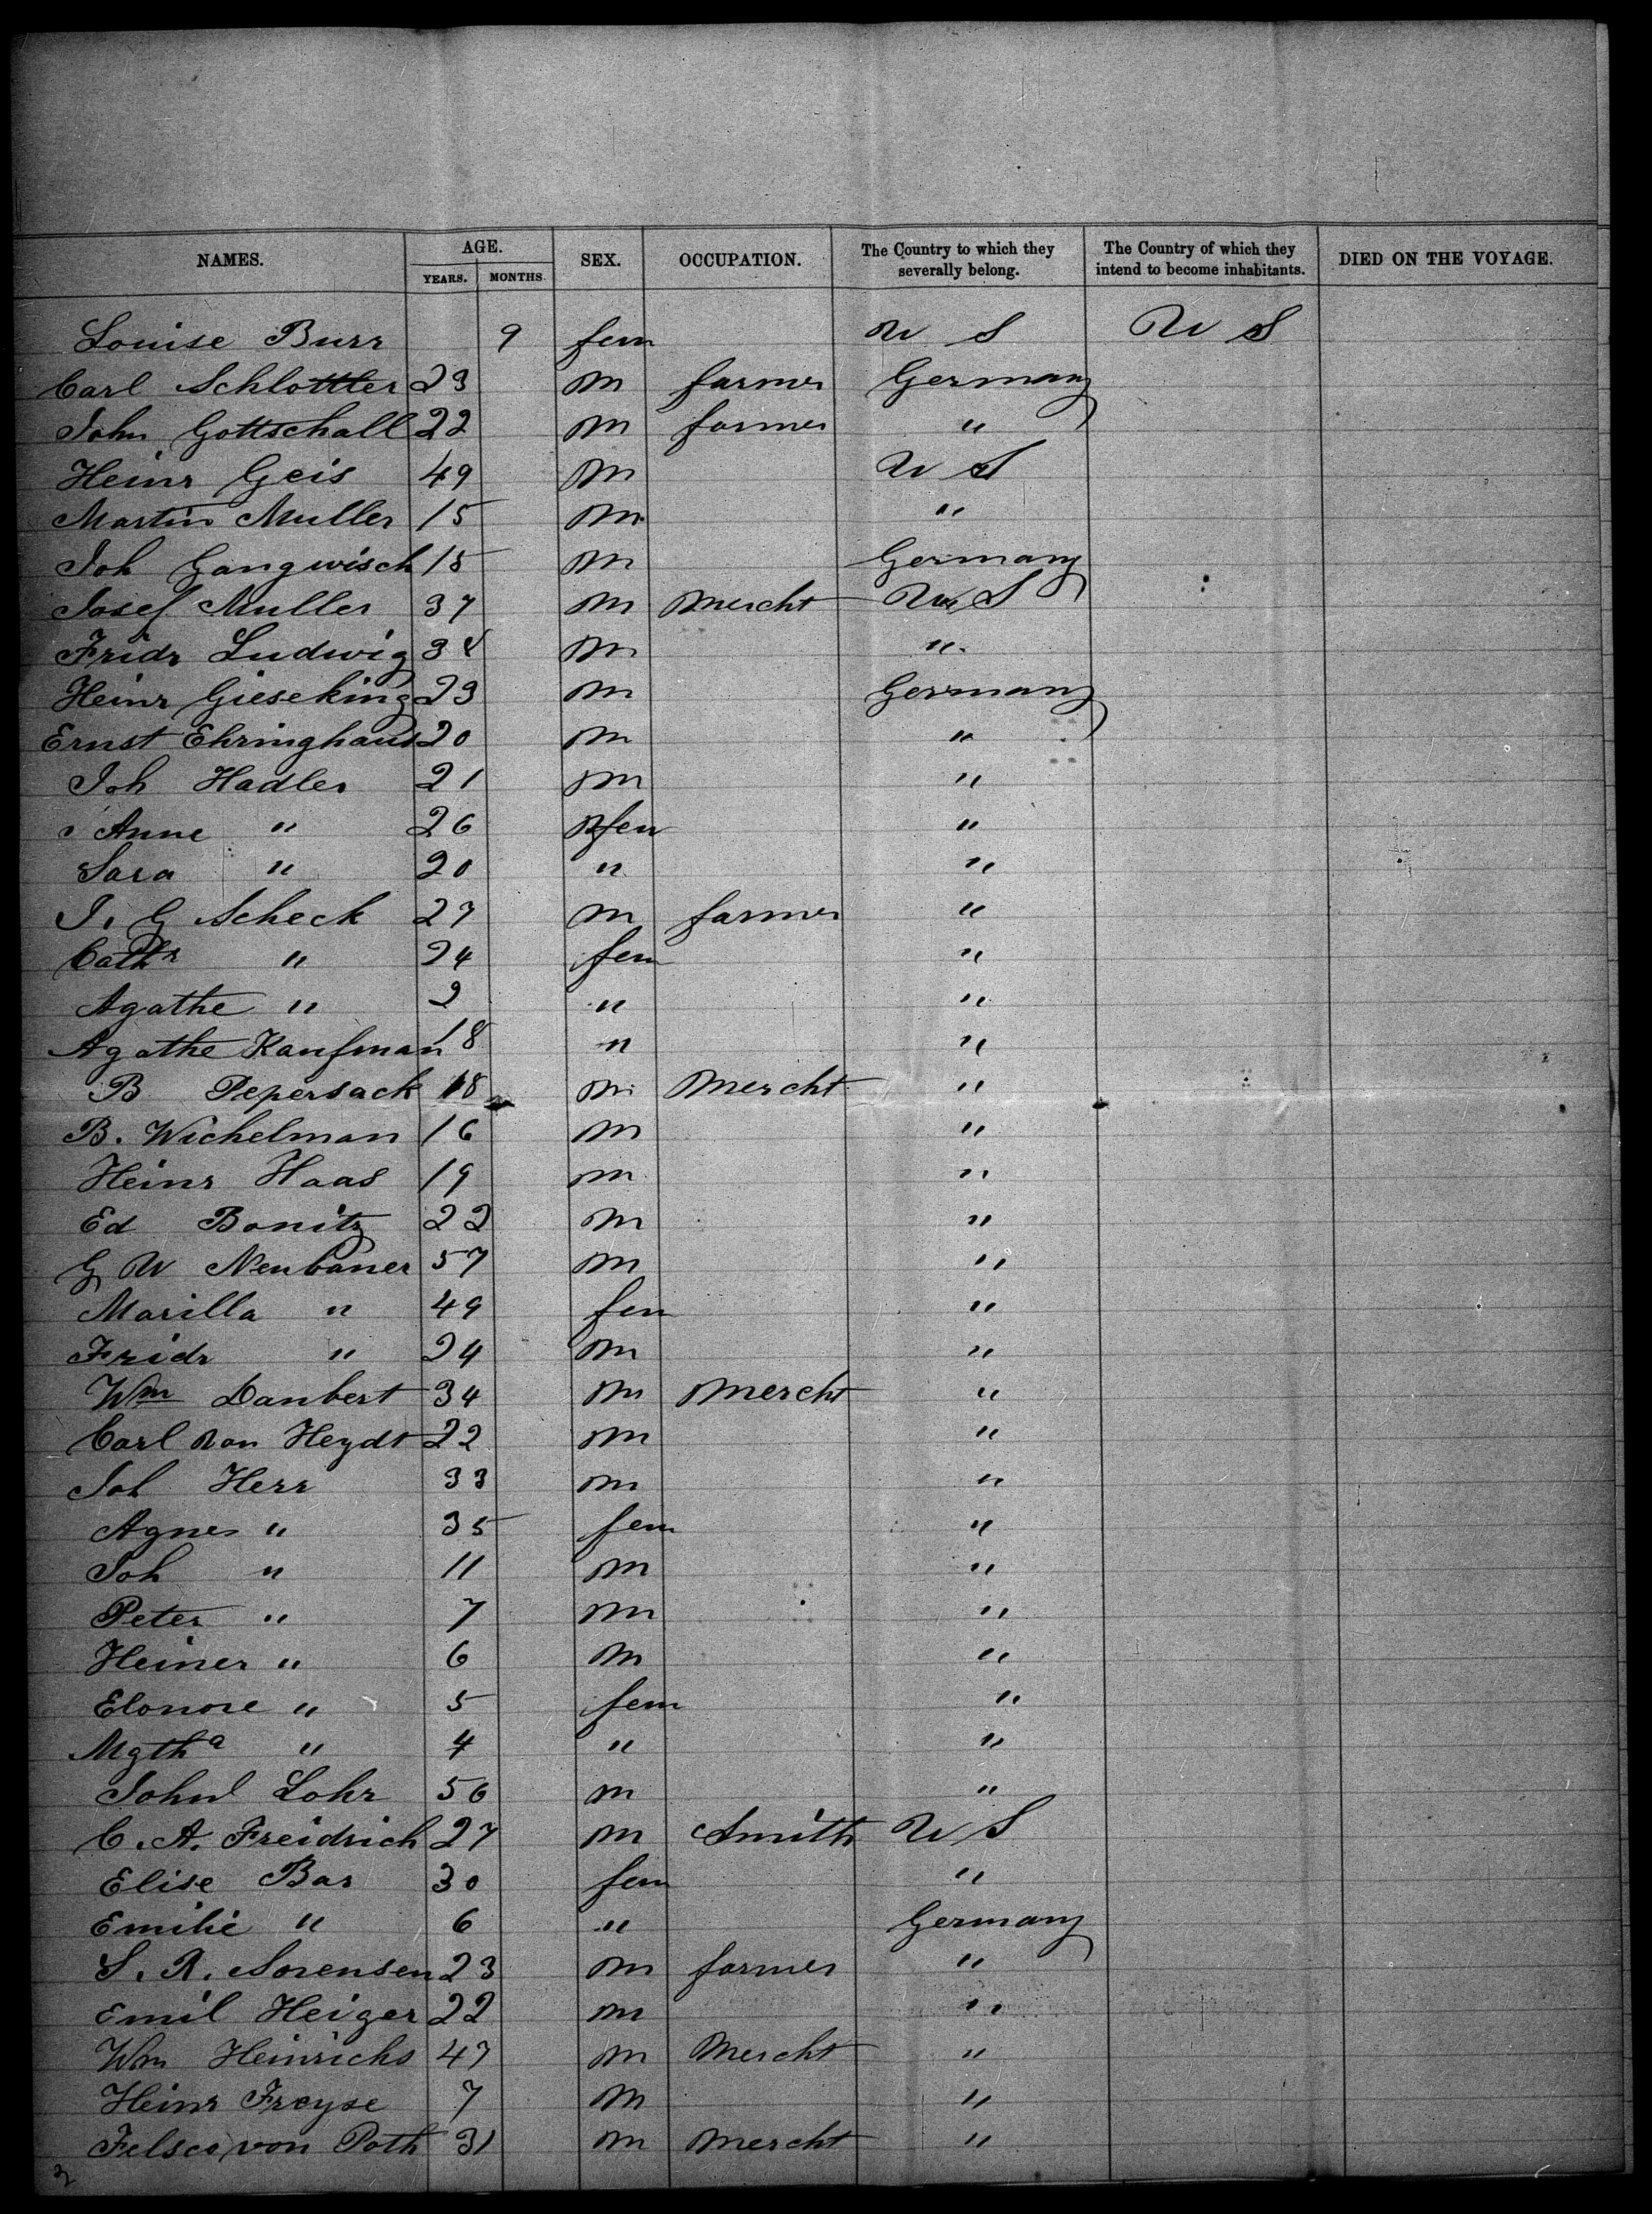 NAMES. AGE. YEARS. MONTHS. SEX. OCCUPATION. The Country to which they severally belong. The Country of which they intend to become inhabitants. DIED ON THE VOYAGE.
Louise Burr 9 fem U S U S
Carl Schlottler 23 m farmer Germany
John Gottschall 22 m farmer "
Heinr Geis 49 m U S
Martin Muller 15 m "
Joh Gangwisch 15 m Germany
Josef Muller 37 m Mercht U S
Fridr Ludwig 34 m "
Heinr Gieseking 23 m Germany
Ernst Ehringhaus 20 m "
Joh Hadler 21 m "
Anne " 26 fem "
Sara " 20 " "
J. G Scheck 27 m farmer "
Cathr " 24 fem "
Agathe " 2 " "
Agathe Kaufman 18 " "
B Pepersack 18 m Mercht "
B. Wichelman 16 m "
Heinr Haas 19 m "
Ed Bonitz 22 m "
G W Neubauer 57 m "
Marilla " 49 fem "
Fridr " 24 m "
Wm Daubert 34 m Mercht "
Carl von Heydt 22 m "
Joh Herr 33 m "
Agnes " 35 fem "
Joh " 11 m "
Peter " 7 m "
Heiner " 6 m "
Elonore " 5 fem "
Mgtha " 4 " "
John Lohr 56 m "
C. A. Freidrich 27 m Smith U S
Elise Bar 30 fem "
Emilie " 6 " Germany
S. R. Sorensen 23 m farmer "
Emil Heiger 22 m "
Wm Heinrichs 47 m Mercht "
Heinr Freyse 7 m "
von Poth 31 m Mercht "